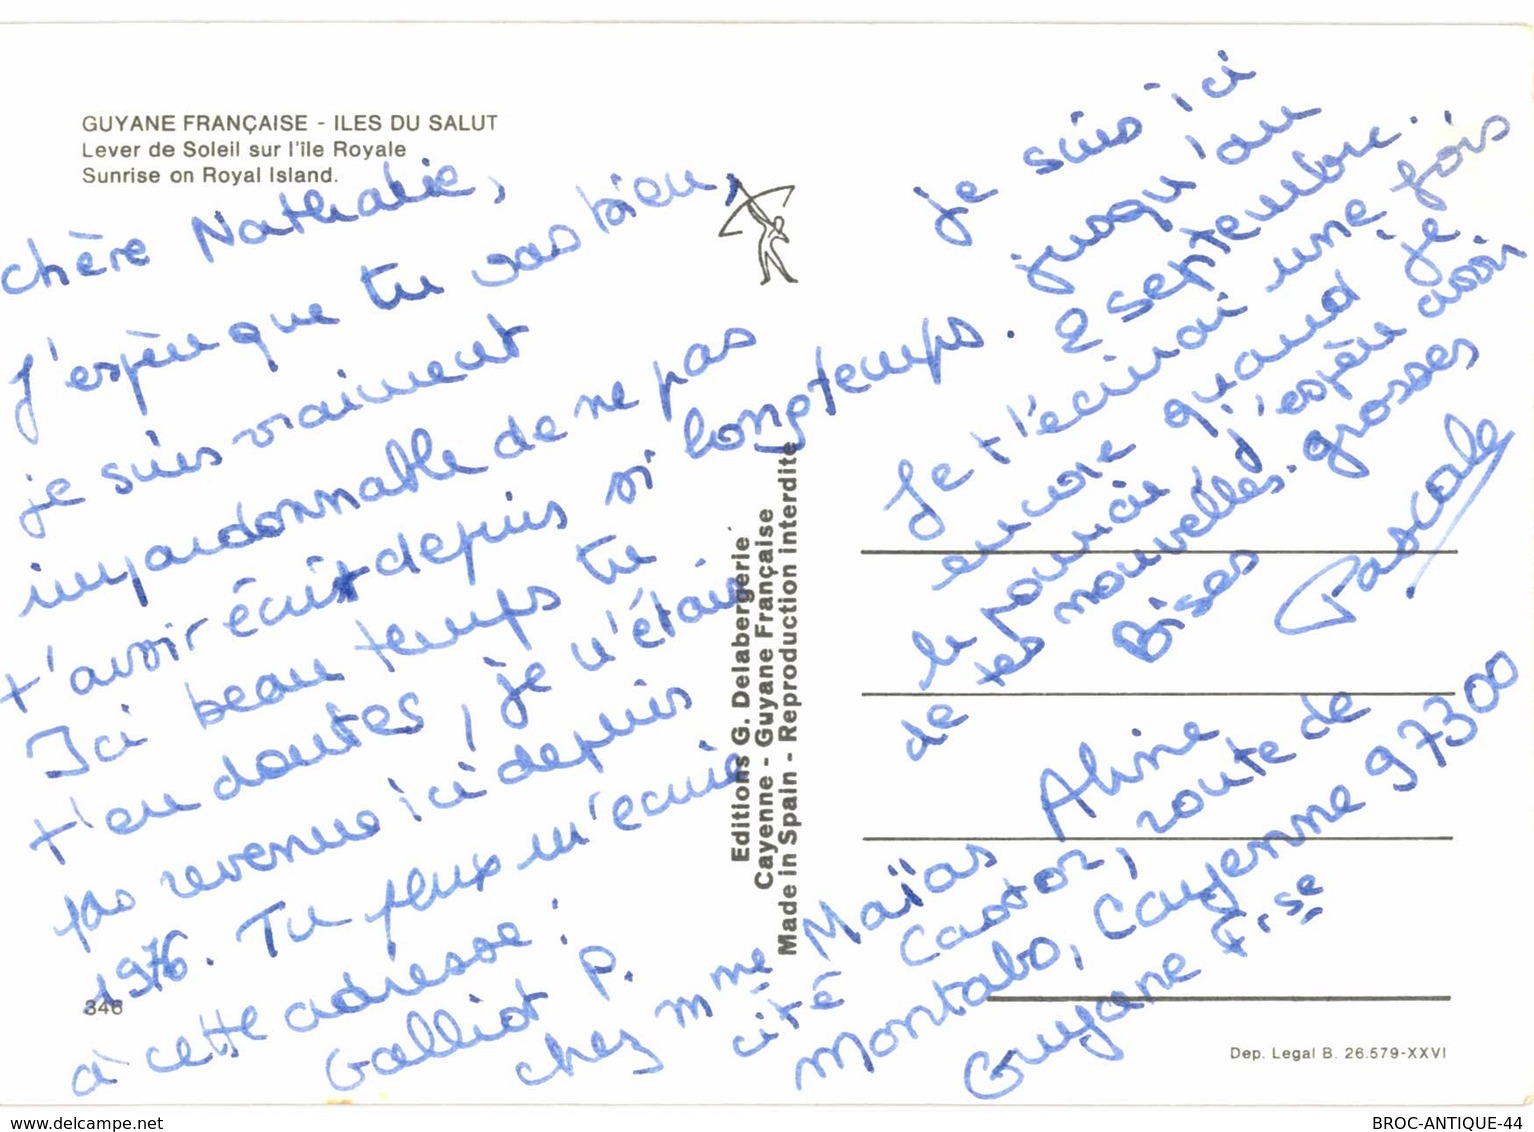 GUYANE FRANÇAISE - ILES DU SALUT
Lever de Soleil sur l'île Royale
Sunrise on Royal Island.
chère Nathalie,
J'espère que tu vas bien,
je suis vraiment
impardonnable de ne pas
t'avoir écrit depuis si longtemps.
Ici beau temps tu
t'en doutes, je n'étais
pas revenue ici depuis
1976. Tu peux m'écrire
à cette adresse :
Galliot P.
chez Mme Maïas Aline
cité Castor, route de
Montabo, Cayenne 97300
Guyane Fse
je suis ici
jusqu'au
2 septembre.
Je t'écrirai une fois
encore quand je
le pourrai j'espère avoir
de tes nouvelles. grosses
Bises
Pascale
Editions G. Delabergerie
Cayenne - Guyane Française
Made in Spain - Reproduction interdite
346
Dep. Legal B. 26.579-XXVI
delcampe.net
BROC-ANTIQUE-44